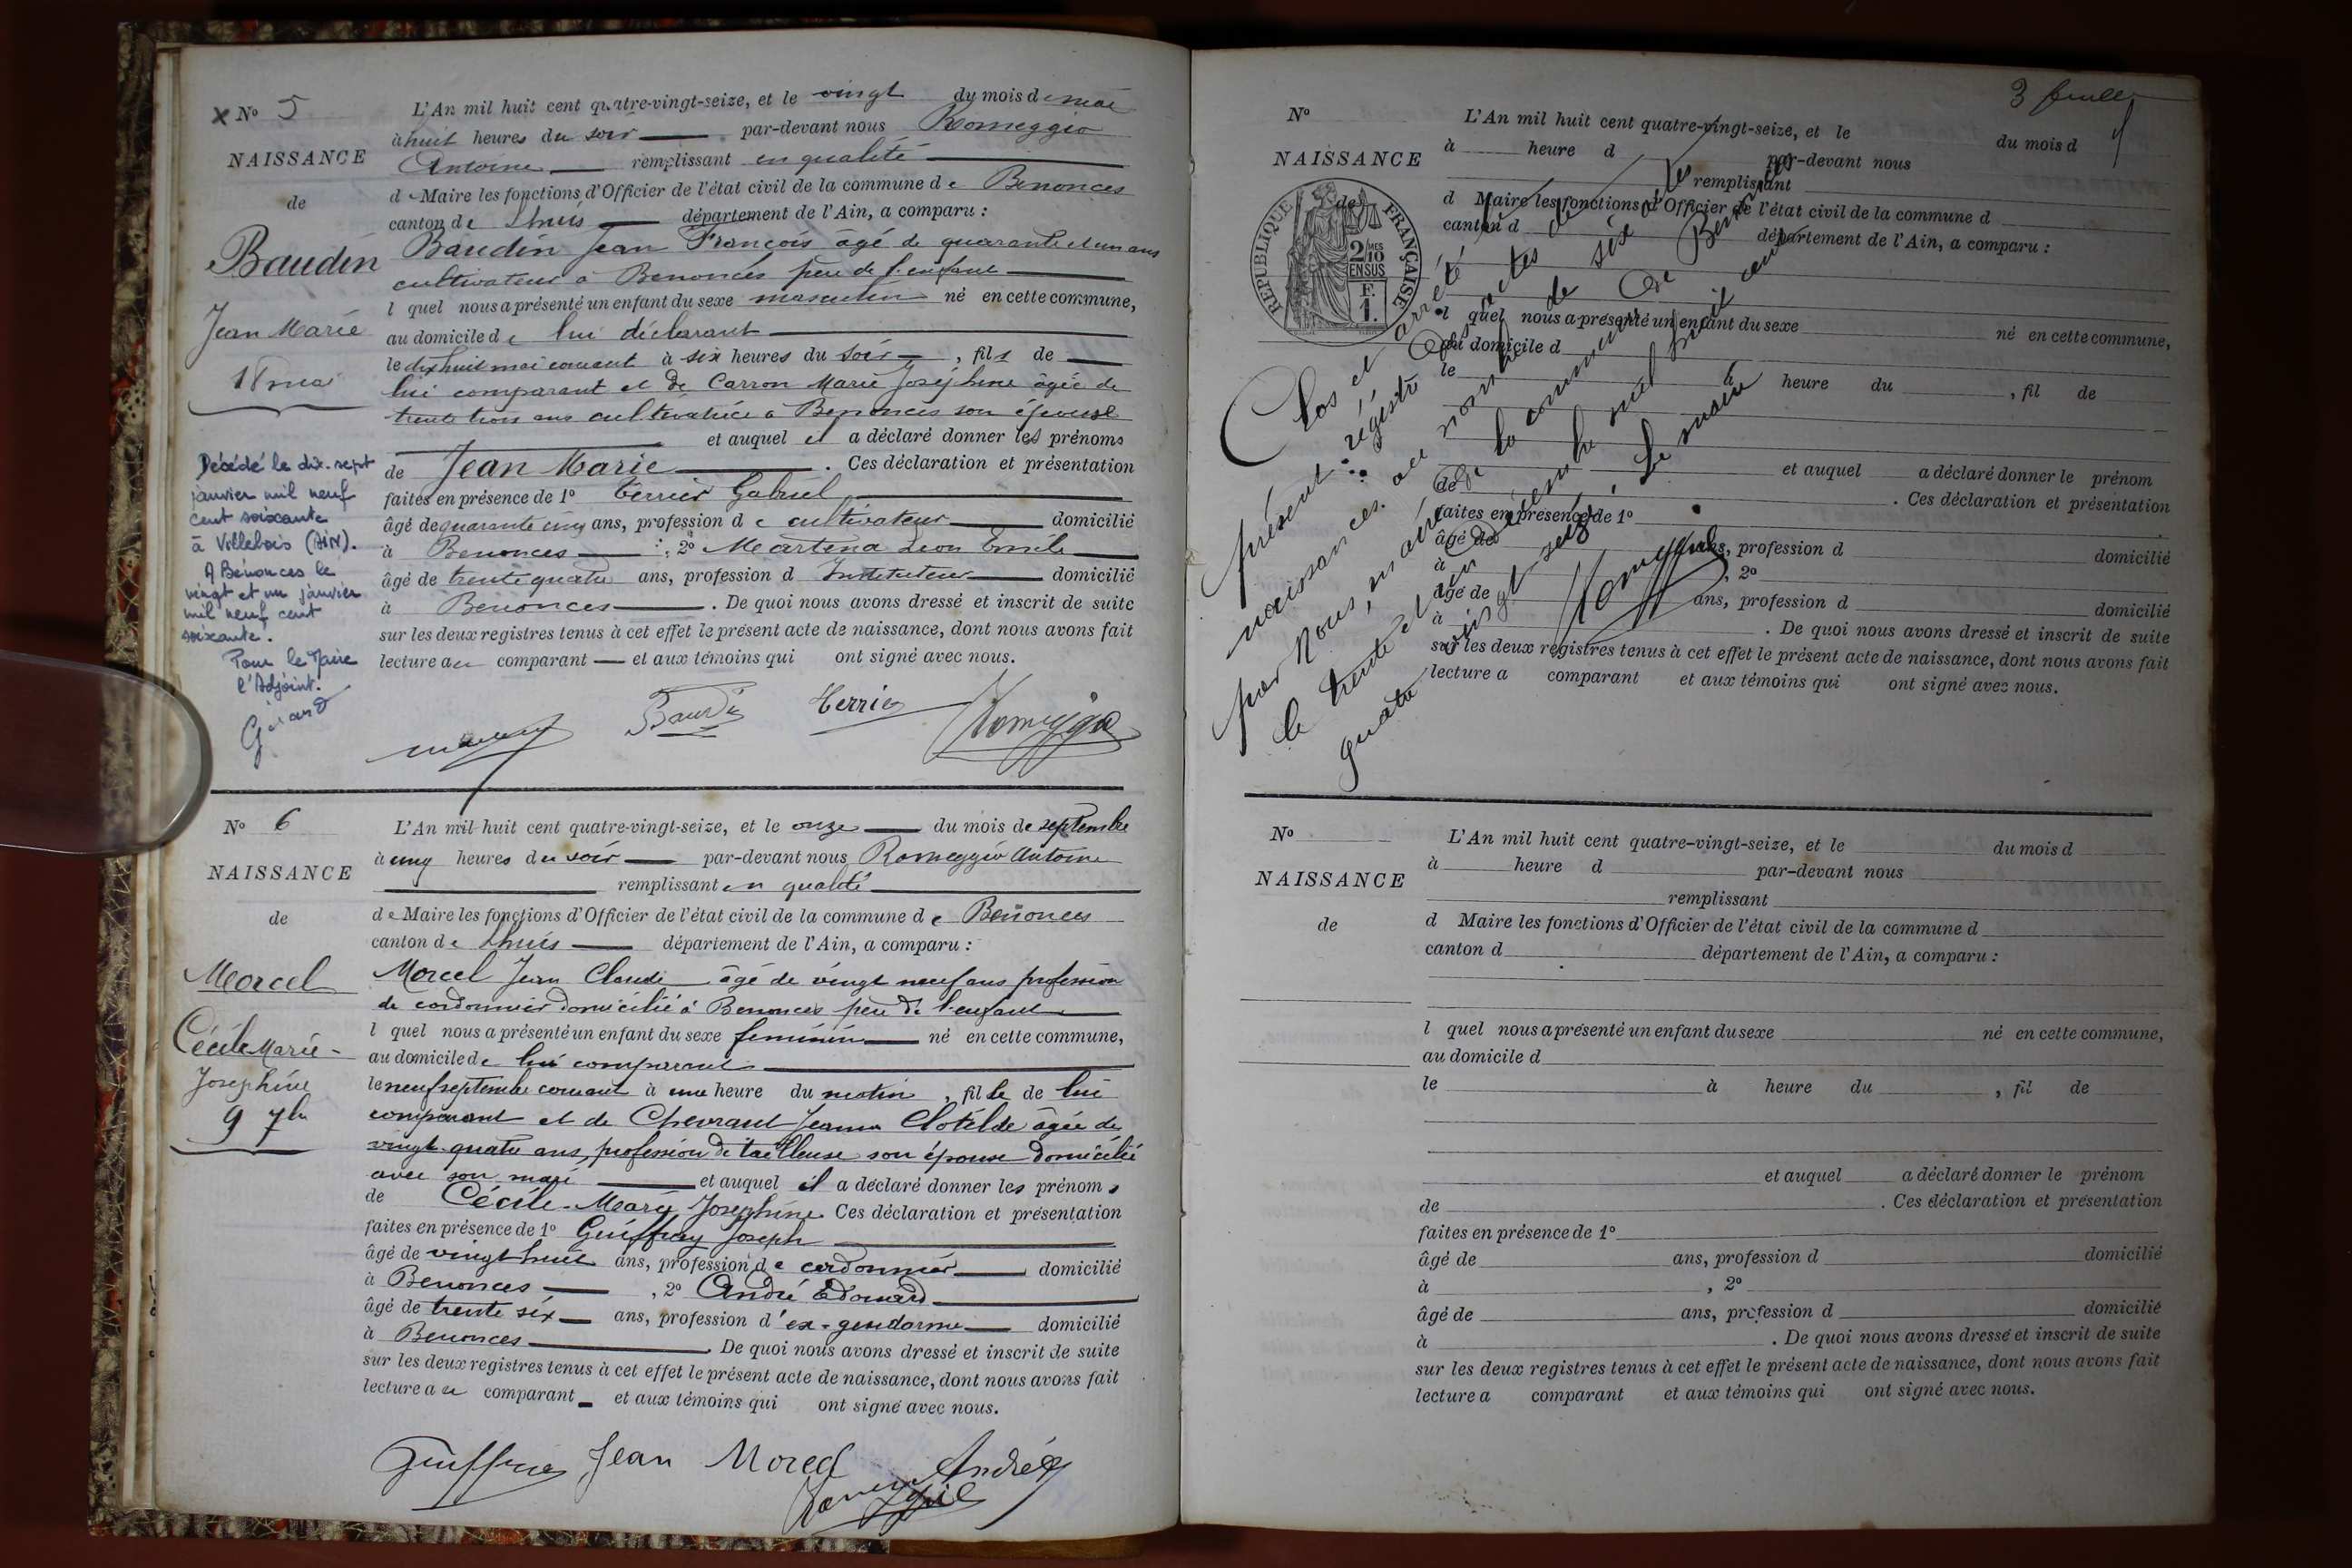 × No 5
NAISSANCE
de
Baudin
Jean Marie
18 mai
Décédé le dix-sept
janvier mil neuf
cent soixante
à Villebois (AIN).
A Bénonces le
vingt et un janvier
mil neuf cent
soixante.
Pour le Maire
l'Adjoint.
Girard
L'An mil huit cent quatre-vingt-seize, et le vingt du mois de mai
à huit heures du soir par-devant nous Romeggio
Antoine remplissant en qualité
de Maire les fonctions d'Officier de l'état civil de la commune de Benonces
canton de Lhuis département de l'Ain, a comparu :
Baudin Jean François âgé de quarante et un ans
cultivateur à Benonces père de l'enfant
l quel nous a présenté un enfant du sexe masculin né en cette commune,
au domicile de lui déclarant
le dix huit mai courant à six heures du soir, fils de
lui comparant et de Carron Marie Joséphine âgée de
trente trois ans cultivatrice à Benonces son épouse
et auquel il a déclaré donner les prénoms
de Jean Marie. Ces déclaration et présentation
faites en présence de 1o Terrier Gabriel
âgé de quarante cinq ans, profession de cultivateur domicilié
à Benonces, 2o Martena Léon Emile
âgé de trente quatre ans, profession d Instituteur domicilié
à Benonces. De quoi nous avons dressé et inscrit de suite
sur les deux registres tenus à cet effet le présent acte de naissance, dont nous avons fait
lecture au comparant et aux témoins qui ont signé avec nous.
Baudin Terrier Romeggio
No 6
NAISSANCE
de
Morcel
Cécile Marie-
Joséphine
9 7bre
L'An mil huit cent quatre-vingt-seize, et le onze du mois de septembre
à cinq heures du soir par-devant nous Romeggio Antoine
remplissant en qualité
de Maire les fonctions d'Officier de l'état civil de la commune de Benonces
canton de Lhuis département de l'Ain, a comparu :
Morcel Jean Claude âgé de vingt neuf ans profession
de cordonnier domicilié à Benonces père de l'enfant
l quel nous a présenté un enfant du sexe féminin né en cette commune,
au domicile de lui comparant
le neuf septembre courant à une heure du matin, fille de lui
comparant et de Chevraut Jeanne Clotilde âgée de
vingt-quatre ans, profession de tailleuse son épouse domicilié
avec son mari et auquel il a déclaré donner les prénoms
de Cécile-Marie Joséphine Ces déclaration et présentation
faites en présence de 1o Guiffray Joseph
âgé de vingt huit ans, profession de cordonnier domicilié
à Benonces, 2o André Edouard
âgé de trente six ans, profession d'ex-gendarme domicilié
à Benonces. De quoi nous avons dressé et inscrit de suite
sur les deux registres tenus à cet effet le présent acte de naissance, dont nous avons fait
lecture au comparant et aux témoins qui ont signé avec nous.
Guiffray Jean Morcel André
Romeggio
3 feuille
No
NAISSANCE
de
RÉPUBLIQUE FRANÇAISE
2/10MES
EN SUS
F.
1.
L'An mil huit cent quatre-vingt-seize, et le du mois d
à heure d par-devant nous
remplissant
d Maire les fonctions d'Officier de l'état civil de la commune d
canton d département de l'Ain, a comparu :
l quel nous a présenté un enfant du sexe né en cette commune,
au domicile d
le à heure du , fil de
et auquel a déclaré donner le prénom
de . Ces déclaration et présentation
faites en présence de 1o
âgé de ans, profession d domicilié
à , 2o
âgé de ans, profession d domicilié
à . De quoi nous avons dressé et inscrit de suite
sur les deux registres tenus à cet effet le présent acte de naissance, dont nous avons fait
lecture a comparant et aux témoins qui ont signé avec nous.
Clos et arrêté le
présent régistre des actes de
naissances au nombre de six actes
par Nous, maire de la commune de Benonces
le trente et un Décembre mil huit cent
quatre vingt seize. Le maire
Romeggio
No
NAISSANCE
de
L'An mil huit cent quatre-vingt-seize, et le du mois d
à heure d par-devant nous
remplissant
d Maire les fonctions d'Officier de l'état civil de la commune d
canton d département de l'Ain, a comparu :
l quel nous a présenté un enfant du sexe né en cette commune,
au domicile d
le à heure du , fil de
et auquel a déclaré donner le prénom
de . Ces déclaration et présentation
faites en présence de 1o
âgé de ans, profession d domicilié
à , 2o
âgé de ans, profession d domicilié
à . De quoi nous avons dressé et inscrit de suite
sur les deux registres tenus à cet effet le présent acte de naissance, dont nous avons fait
lecture a comparant et aux témoins qui ont signé avec nous.